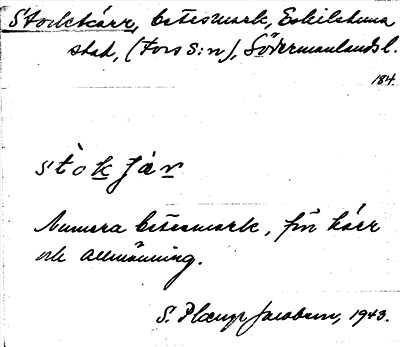 Stockkärr, betesmark, Eskilstuna
stad, (Fors s:n), Södermanlands l.
184.
stòkjär
Numera betesmark, förr kärr
och allmänning.
S. Jacobson, 1943.